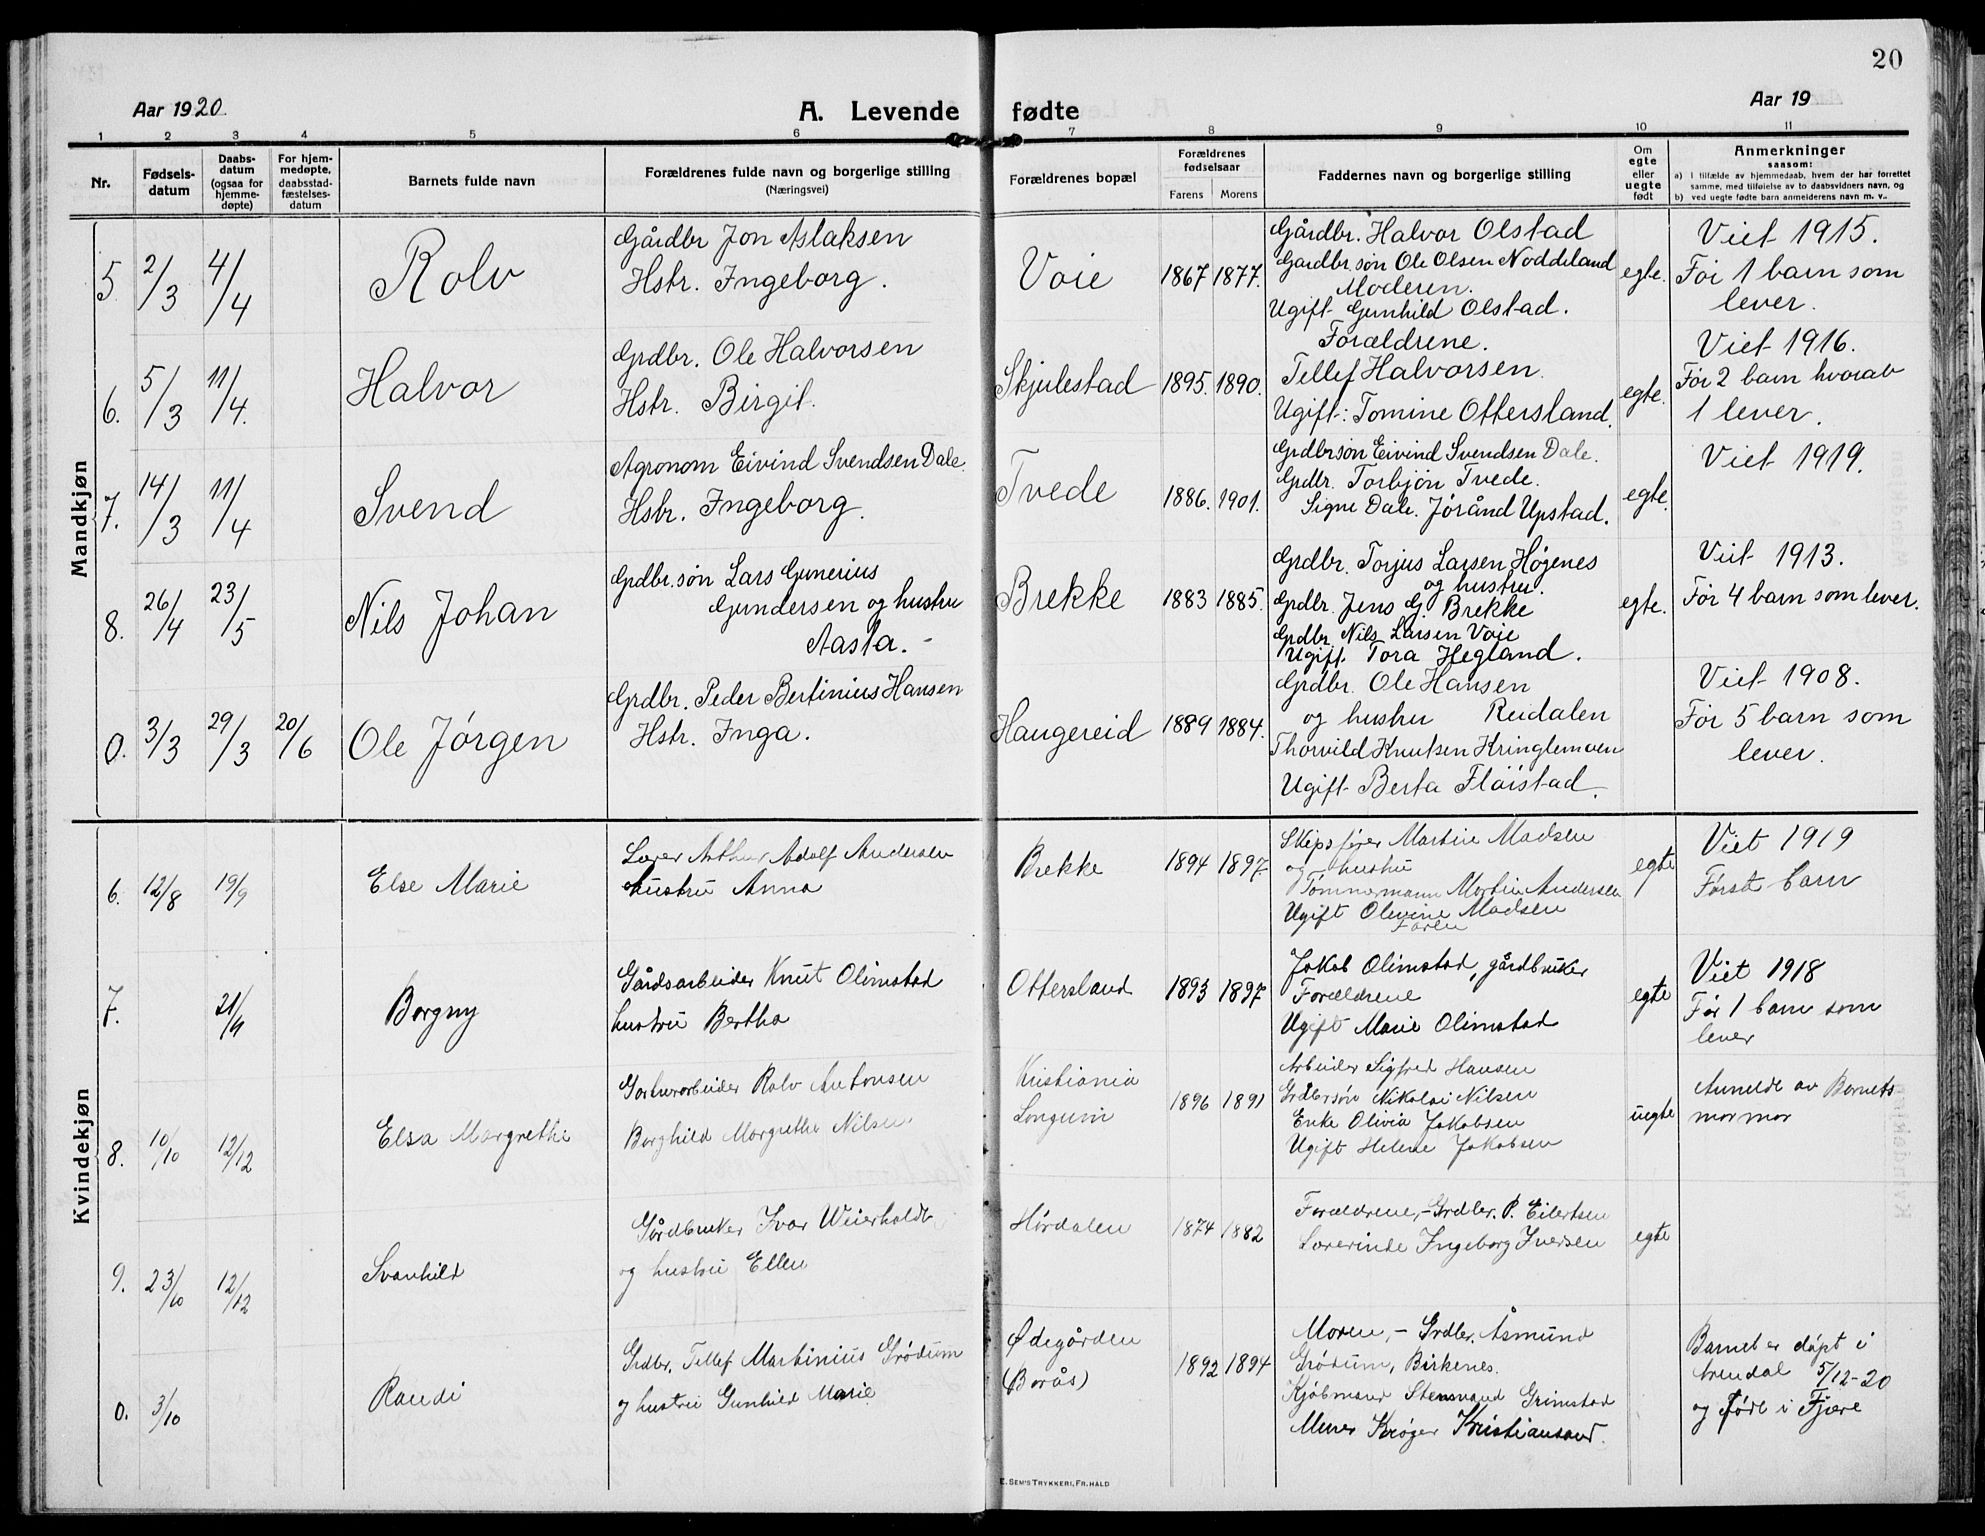 20
Aar 1920.
A. Levende fødte
Aar 19
1 2 3 4 5 6 7 8 9 10 11
Nr.
Fødsels-
datum
Daabs-
datum
(ogsaa for
hjemme-
døpte)
For hjem-
medøpte,
daabsstad-
fæstelses-
datum
Barnets fulde navn
Forældrenes fulde navn og borgerlige stilling
(Næringsvei)
Forældrenes bopæl
Forældrenes
fødselsaar
Farens Morens
Faddernes navn og borgerlige stilling
Om
egte
eller
uegte
født
Anmerkninger
saasom:
a) I tilfælde av hjemmedaab, hvem der har forrettet
samme, med tilføielse av to daabsvidners navn, og
b) ved uegte fødte barn anmelderens navn m. v..
Mandkjøn
5 2/3 4/4
Rolv
Gårdbr Jon Aslaksen
Hstr. Ingeborg.
Voie
1867 1877.
Gårdbr. Halvor Olstad
Gardbr.søn Ole Olsen Noddeland
Moderen.
Ugift Gunhild Olstad.
Forældrene.
egte.
Viet 1915.
Før 1 barn som
lever.
6. 5/3 11/4.
Halvor
Grdbr. Ole Halvorsen
Hstr. Birgit.
Skjulestad
1895. 1890.
Tellef Halvorsen.
Ugift: Tomine Ottersland.
egte.
Viet 1916.
Før 2 barn hvorav
1 lever.
7. 14/3 11/4
Svend
Agronom Eivind Svendsen Dale.
Hstr. Ingeborg.
Tvede
1886. 1901.
Grdbrsøn Eivind Svendsen Dale.
Grdbr. Torbjøn Tvede.
Signe Dale. Jørånd Upstad.
egte.
Viet 1919.
8. 26/4 23/5
Nils Johan
Grdbr.søn Lars Gunerius
Gundersen og hustru
Aasta.
Brekke
1883 1885.
Grdbr. Torjus Larsen Høgenes
og hustru.
Grdbr. Jens G. Brekke
Grdbr Nils Larsen Voie
Ugift. Tora Hegland.
egte.
Viet 1913.
Før 4 barn som lever.
0. 3/3 29/3 20/6
Ole Jørgen
Grdbr. Peder Bertinius Hansen
Hstr. Inga.
Haugereid
1889 1884.
Grdbr. Ole Hansen
og hustru Reidalen
Thorvild Knutsen Kringlemoen
Ugift Berta Fløistad.
Viet 1908.
Før 5 barn som
lever.
Kvindekjøn
6. 12/8 19/9
Else Marie
Lærer Arthur Adolf Andersen
hustru Anna
Brekke
1894 1897
Skipsfører Martin Madsen
og hustru
Tømmermann Martin Andersen
Ugift Olevine Madsen
Faren
egte
Viet 1919
Første barn
7. 21/9
Borgny
Gårdsarbeider Knut Olimstad
hustru Bertha
Ottersland
1893 1897
Jakob Olimstad, gårdbruker
Forældrene
Ugift Marie Olimstad
egte
Viet 1918
Før 1 barn som
lever
8. 10/10 12/12
Elsa Margrethe
Gartnerarbeider Rolv Antonsen
Borghild Margrethe Nilsen
Kristiania
Longum
1896 1891
Arbeider Sigfred Hansen
Grdbrsøn Nikolai Nilsen
Enke Olivia Jakobsen
Ugift Helene Jakobsen
uegte
Anmeldt av Barnets
mormor
9. 23/10 12/12
Svanhild
Gårdbruker Ivar Weierholdt
og hustru Ellen
Hørdalen
1874 1882
Forældrene,-Grdbr. P. Eilertsen
Lærerinde Ingeborg Iversen
egte
0. 3/10
Randi
Grdbr. Tellef Martinius Grødum
og hustru Gunhild Marie
Ødegården
(Borås)
1892 1894
Moren, - Grdbr. Åsmund
Grødum, Birkenes.
Kjøbmand Stensvand Grimstad
Krøger Kristiansand.
Barnet er døpt i
Arendal 5/12-20
og født i Fjære
E. SEM'S TRYKKERI, FR.HALD